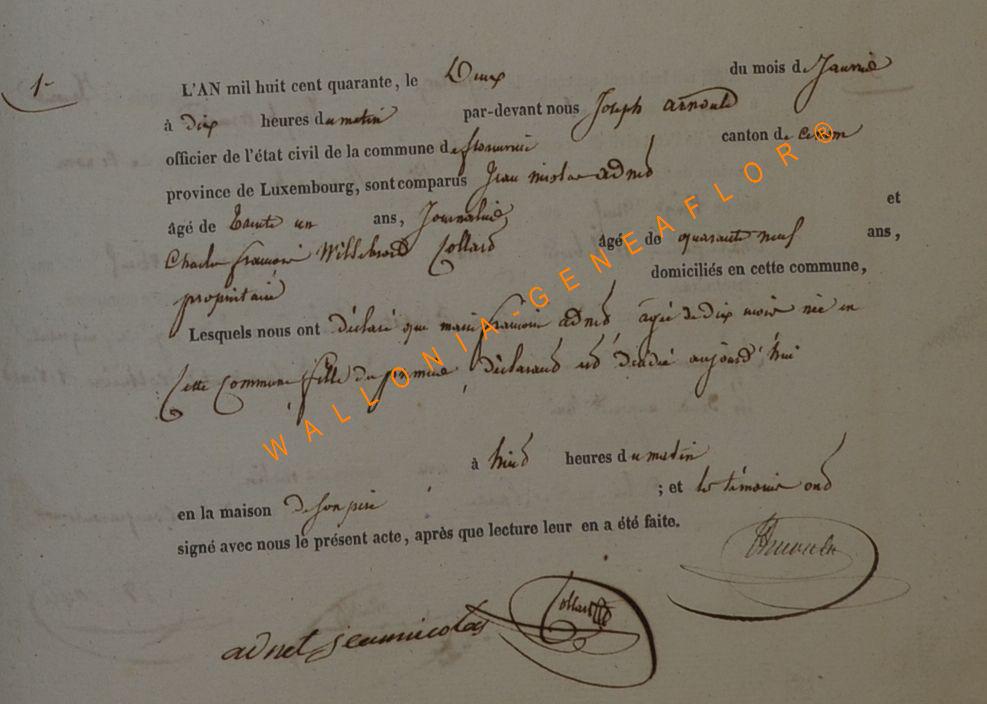 1.
L'AN mil huit cent quarante, le Deux du mois de Janvié
à dix heures du matin par-devant nous Joseph arnould
officier de l'état civil de la commune de canton de
province de Luxembourg, sont comparus Jean nicolas adnet
âgé de trente un ans, Journalié et
Charles françois Willebrord Collard âgé de quarante neuf ans,
propriétaire domiciliés en cette commune,
Lesquels nous ont déclaré que marie françoise adnet agée de dix mois née en
cette commune fille du premié déclarant est décédée aujourd'hui
à huit heures du matin
en la maison de son père ; et les témoins ont
signé avec nous le présent acte, après que lecture leur en a été faite.
adnet jean nicolas Collard
WALLONIA-GENEAFLOR®